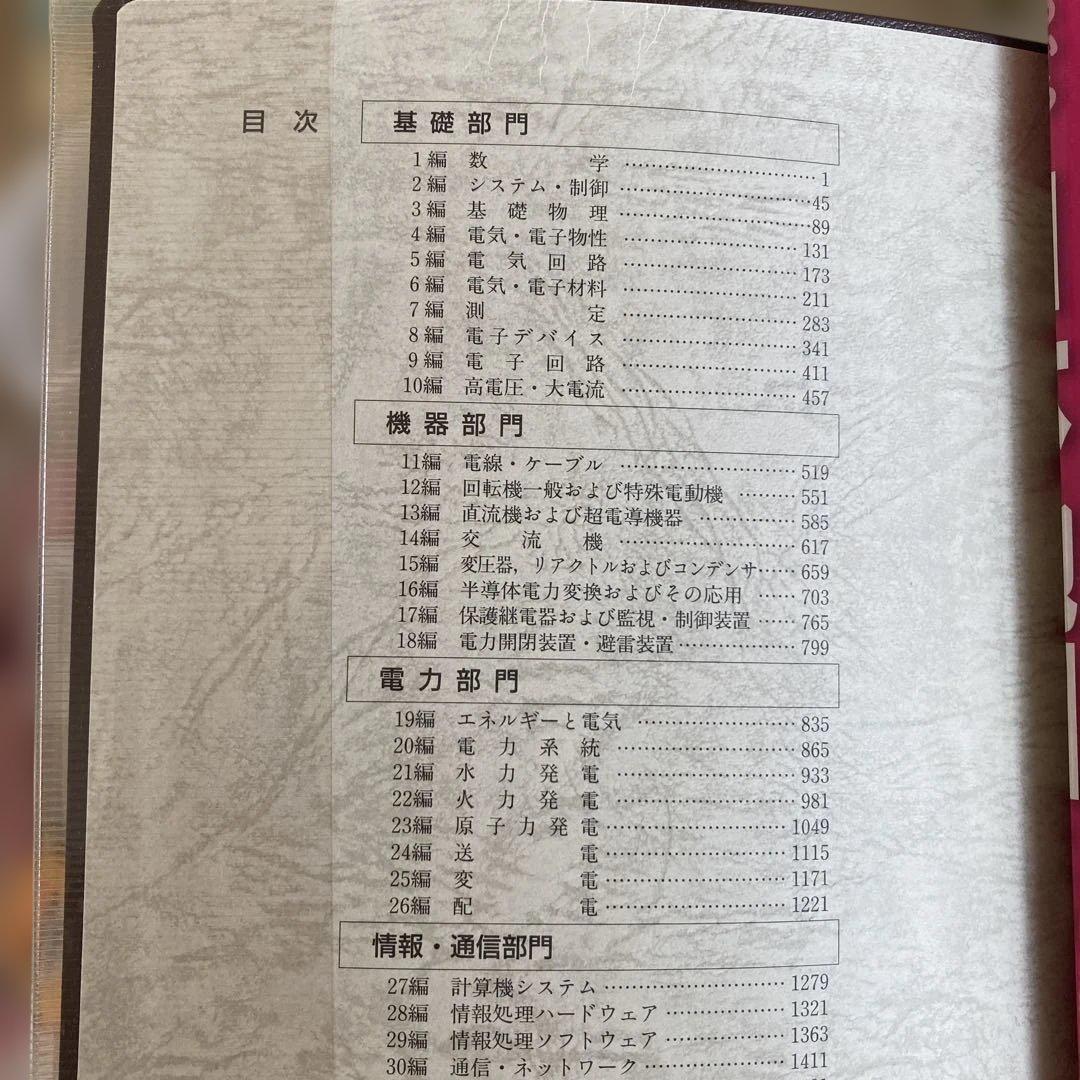 目次
基礎部門
1編 数学 …… 1
2編 システム・制御 …… 45
3編 基礎物理 …… 89
4編 電気・電子物性 …… 131
5編 電気回路 …… 173
6編 電気・電子材料 …… 211
7編 測定 …… 283
8編 電子デバイス …… 341
9編 電子回路 …… 411
10編 高電圧・大電流 …… 457
機器部門
11編 電線・ケーブル …… 519
12編 回転機一般および特殊電動機 …… 551
13編 直流機および超電導機器 …… 585
14編 交流機 …… 617
15編 変圧器，リアクトルおよびコンデンサ …… 659
16編 半導体電力変換およびその応用 …… 703
17編 保護継電器および監視・制御装置 …… 765
18編 電力開閉装置・避雷装置 …… 799
電力部門
19編 エネルギーと電気 …… 835
20編 電力系統 …… 865
21編 水力発電 …… 933
22編 火力発電 …… 981
23編 原子力発電 …… 1049
24編 送電 …… 1115
25編 変電 …… 1171
26編 配電 …… 1221
情報・通信部門
27編 計算機システム …… 1279
28編 情報処理ハードウェア …… 1321
29編 情報処理ソフトウェア …… 1363
30編 通信・ネットワーク …… 1411